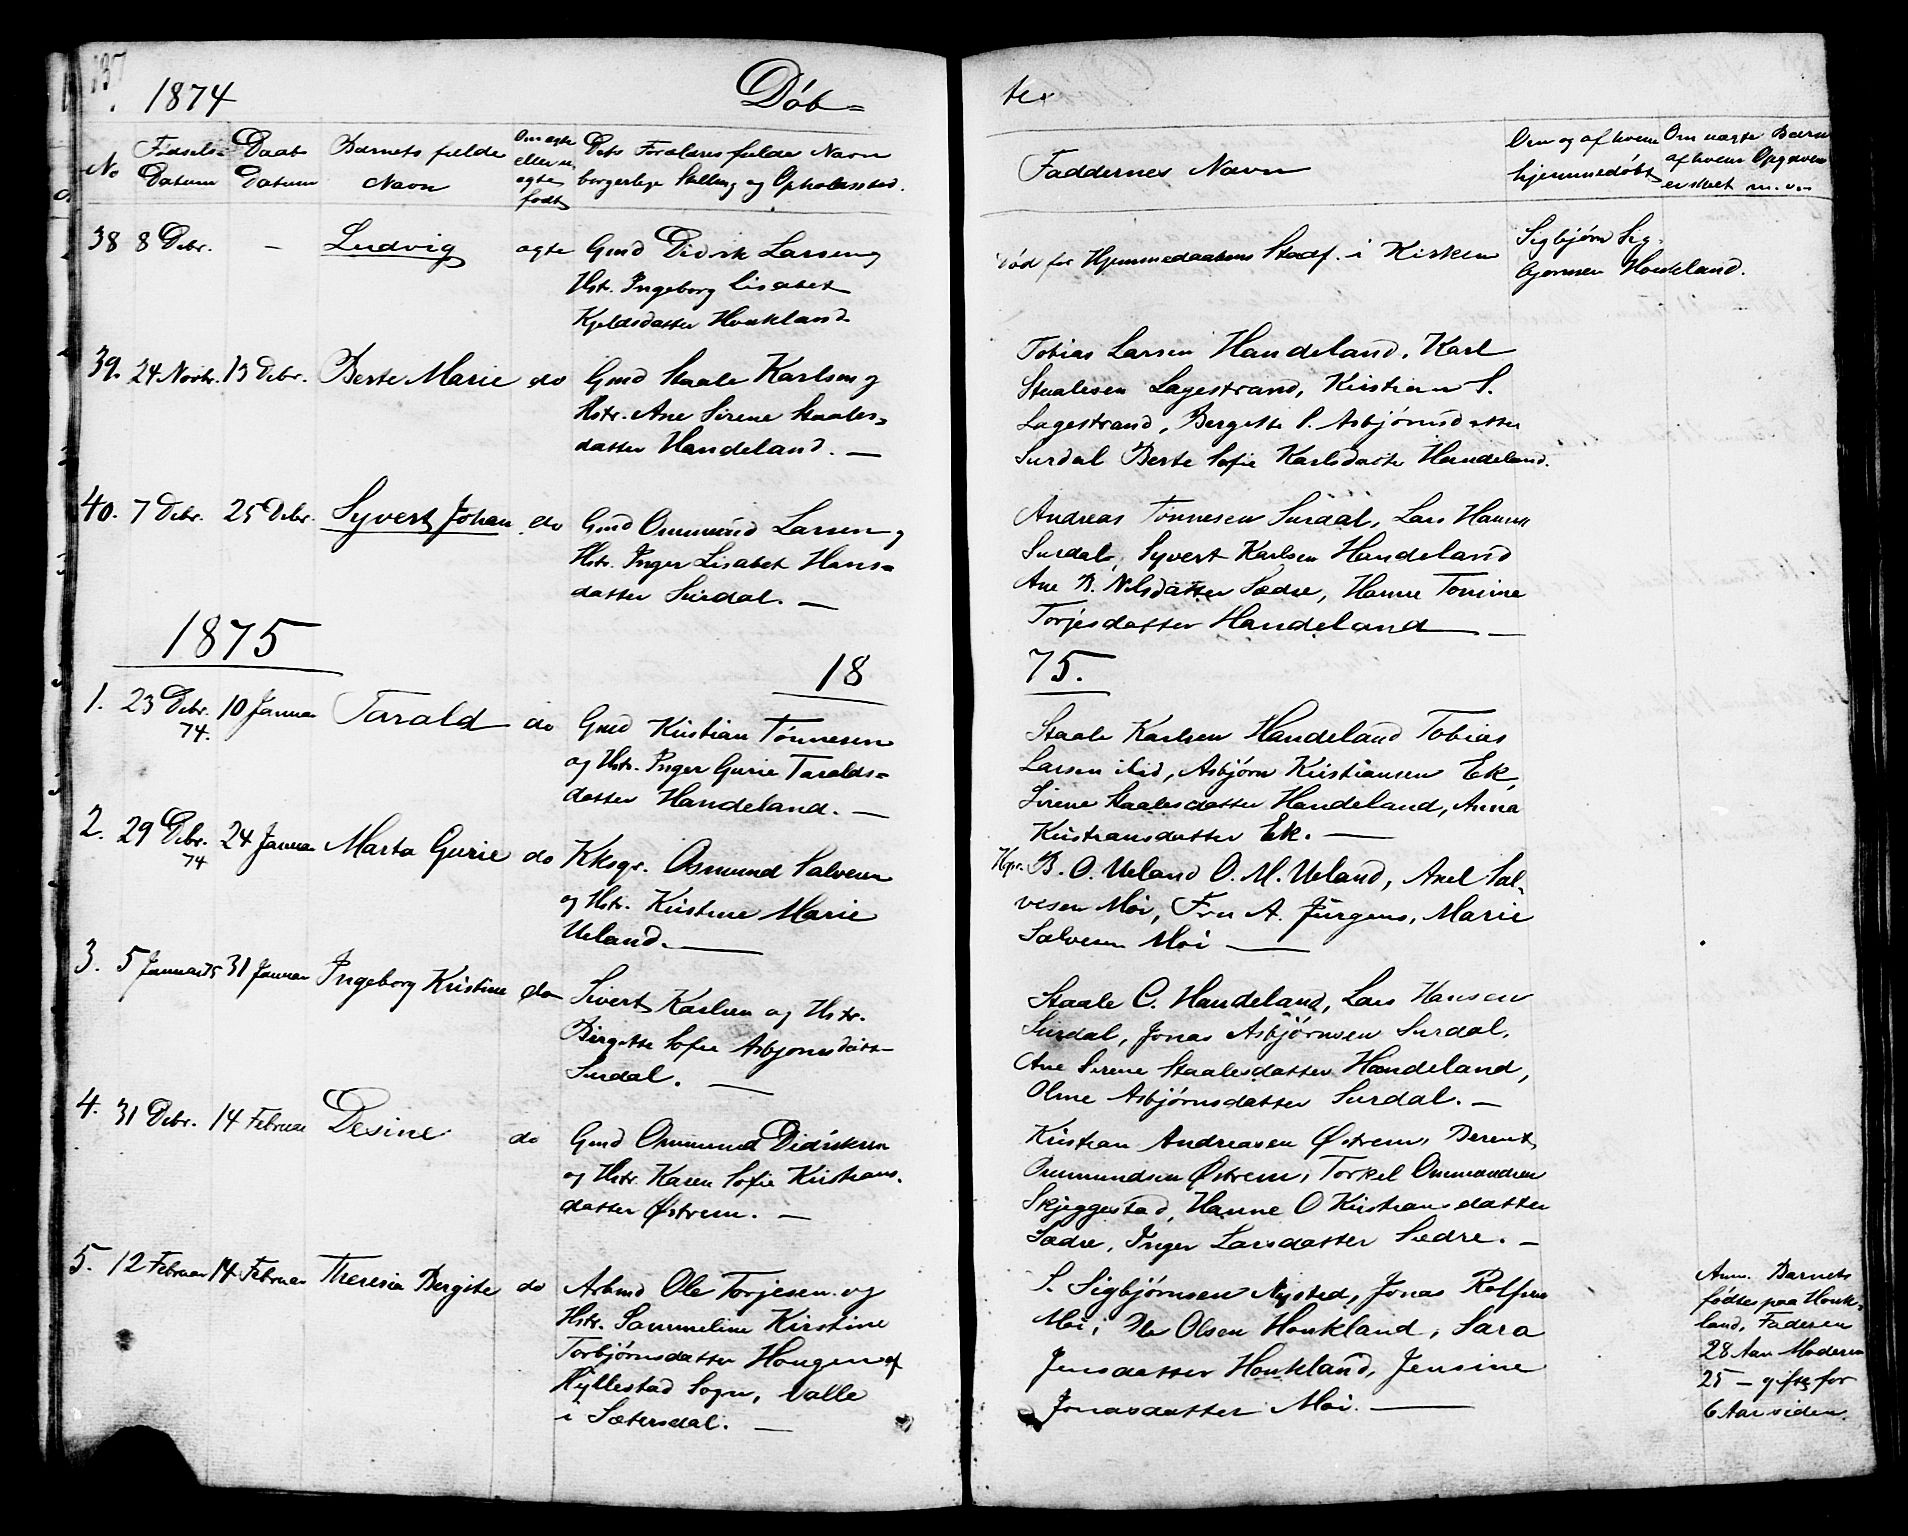 137.
1874
Döb=
te.
No
Fødsels= Datum
Daab Datum
Barnets fulde Navn
Om ægte eller u ægte født
Dets Forældres fulde Navn
borgerlige Stilling og Opholdssted.
Faddernes Navn
Om og af hvem
hjemmedöbt
Om uægte Barn
af hvem Opgaven
er skeet m. v.
38 8 Debr. — Ludvig ægte Gmd Didrik Larsen og
Hstr. Ingeborg Lisabet
Kjeldsdatter Houkland
Död før Hjemmedaabens Stadf. i Kirken
Sigbjörn Sig-
bjornsen Houkland.
39. 24 Novbr. 13 Debr. Berte Marie do Gmd Staale Karlsen og
Hstr. Ane Sirene Staales=
datter Handeland. —
Tobias Larsen Handeland, Karl
Staalesen Lagestrand, Kristian S.
Lagestrand, Bergitte S. Asbjörnsdatter
Surdal Berte Sofie Karlsdatter Handeland.
40. 7 Debr. 25 Debr. Syvert Johan do Gmd Ommund Larsen og
Hstr. Inger Lisabet Hans=
datter Surdal. —
Andreas Tönnesen Surdal, Lars Hansen
Surdal, Syvert Karlsen Handeland
Ane B. Nilsdatter Sædre, Hanne Tonine
Torjesdatter Handeland —
1875
18
75.
1. 23 Debr. 74. 10 Januar Tarald do Gmd Kristian Tönnesen
og Hstr. Inger Gurie Taralds=
datter Handeland. —
Staale Karlsen Handeland Tobias
Larsen ibid, Asbjörn Kristiansen Ek,
Sirene Staalesdatter Handeland, Anna
Kristiansdatter Ek. —
2. 29 Debr. 74 24 Januar Marta Gurie do Kksgr. Osmund Salvesen
og Hstr. Kristine Marie
Ueland. —
B. O. Ueland O. M. Ueland, Axel Sal-
vesen Moi, Fru A. Jürgens, Marie
Salvesen Moi —
3. 5 Januar 75 31 Januar Ingeborg Kristine do Sivert Karlsen og Hstr.
Birgitte Sofie Asbjornsdatter
Surdal. —
Staale C. Handeland, Lars Hansen
Surdal, Jonas Asbjörnsen Surdal,
Ane Sirene Staalesdatter Handeland,
Oline Asbjörnsdatter Surdal. —
4. 31 Debr. 14 Februar Desine do Gmd Ommund Didriksen
og Hstr. Karen Sofie Kristians-
datter Østrem. —
Kristian Andreasen Østrem, Berent
Ommundsen Østrem, Torkel Ommundsen
Skjeggestad, Hanne O Kristiansdatter
Sædre, Inger Larsdatter Sædre. —
5. 12 Februar 14 Februar Theresia Bergite do Arbmd Ole Torjesen og
Hstr. Sammeline Kirstine
Torbjörnsdatter Hougen af
Hyllestad Sogn, Valle
i Sætersdal. —
S. Sigbjörnsen Nysted, Jonas Rolfsen
Moi, Ole Olsen Houkland, Sara
Jensdatter Houkland, Jensine
Jonasdatter Moi. —
Anm. Barnets
födtes paa Houk=
land, Faderen
28 Aar Moderen
25 — gifte for
6 Aar siden.